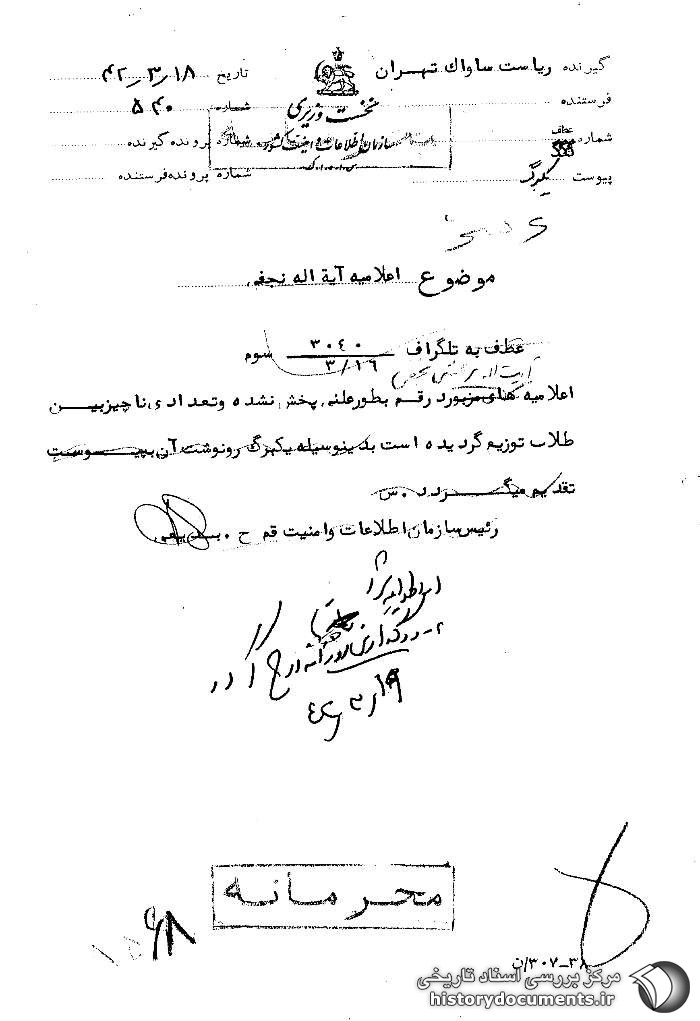 گیرنده ریاست ساواک تهران
تاریخ ۴۲/۳/۱۸
نخست وزیری
فرستنده
شماره ۵۴۰
سازمان اطلاعات و امنیت کشور
س.ا.و.ا.ک
شماره عطف
شماره پرونده گیرنده
پیوست یکبرگ
شماره پرونده فرستنده
موضوع اعلامیه آیة اله نجفی
عطف به تلگراف ۳۰۴۰ سوم
۳/۱۶
آیت اله مرعشی نجفی
اعلامیه های مزبور در قم بطور علنی پخش نشده و تعدادی ناچیز بین
طلاب توزیع گردیده است بدینوسیله یکبرگ رونوشت آن به پیوست
تقدیم میگردد. س
رئیس سازمان اطلاعات و امنیت قم ح. بدیعی
۴۲/۳/۱۹
محرمانه
۳۸-۳۰۷/ن
مرکز بررسی اسناد تاریخی
historydocuments.ir